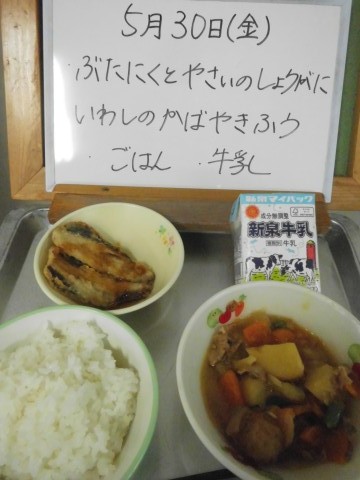 5月30日(金)
・ぶたにくとやさいのしょうがに
いわしのかばやきふう
・ごはん ・牛乳
新泉牛乳
成分無調整
牛乳